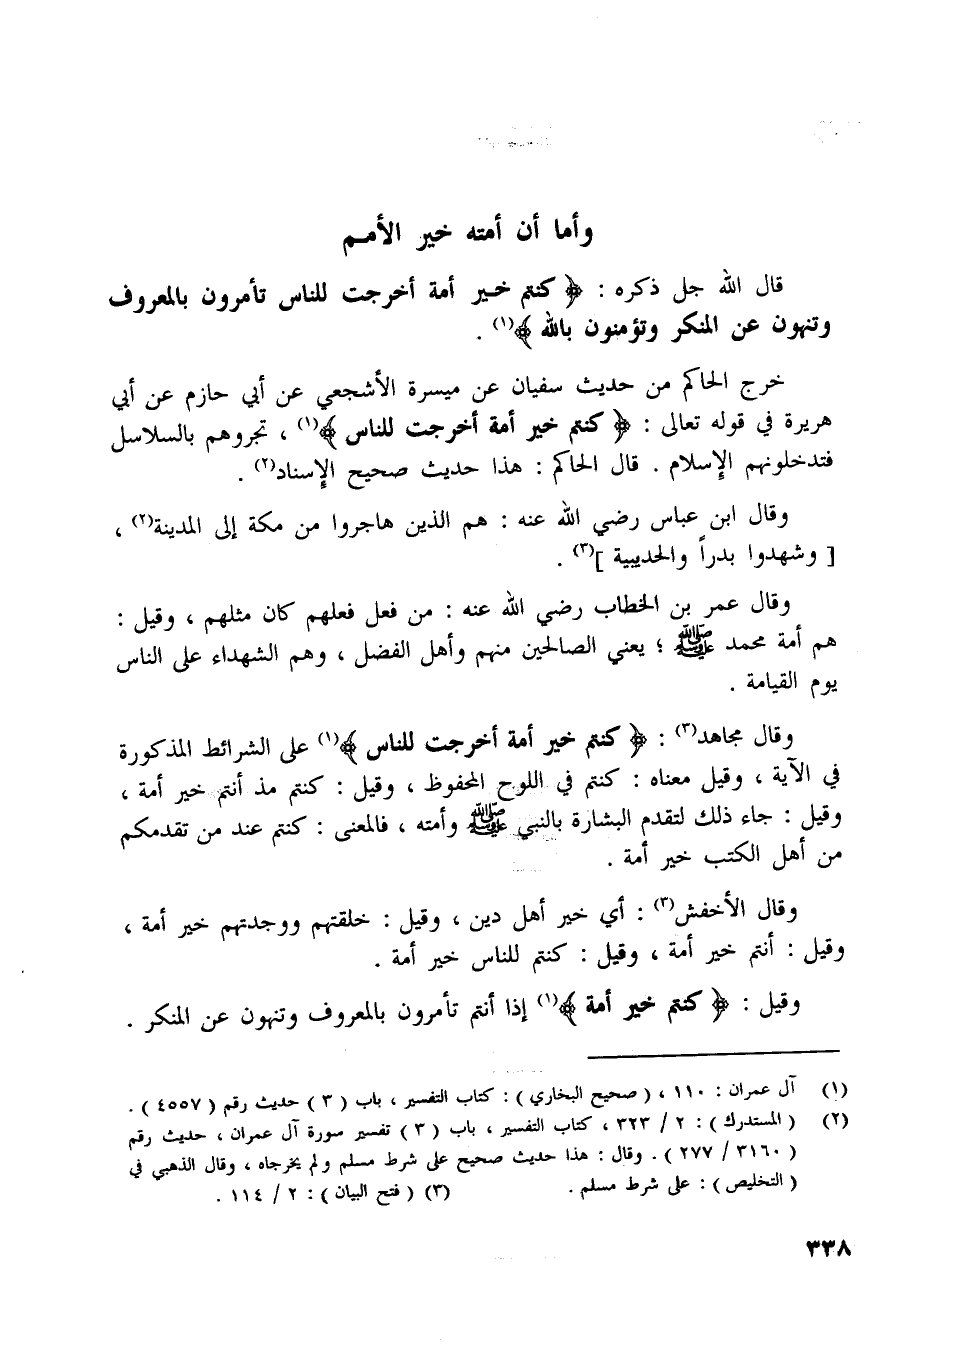 وأما أن أمته خير الأمـم
قال الله جل ذكره : ﴿ كنتم خـير أمة أخرجت للناس تأمرون بالمعروف
وتنهون عن المنكر وتؤمنون بالله ﴾(١) .
خرج الحاكم من حديث سفيان عن ميسرة الأشجعي عن أبي حازم عن أبي
هريرة في قوله تعالى : ﴿ كنتم خير أمة أخرجت للناس ﴾(١) ، تجروهم بالسلاسل
فتدخلونهم الإسلام . قال الحاكم : هذا حديث صحيح الإسناد(٢) .
وقال ابن عباس رضي الله عنه : هم الذين هاجروا من مكة إلى المدينة(٢) ،
[ وشهدوا بدراً والحديبية ](٣) .
وقال عمر بن الخطاب رضي الله عنه : من فعل فعلهم كان مثلهم ، وقيل :
هم أمة محمد ﷺ ؛ يعني الصالحين منهم وأهل الفضل ، وهم الشهداء على الناس
يوم القيامة .
وقال مجاهد(٣) : ﴿ كنتم خير أمة أخرجت للناس ﴾(١) على الشرائط المذكورة
في الآية ، وقيل معناه : كنتم في اللوح المحفوظ ، وقيل : كنتم مذ أنتم خير أمة ،
وقيل : جاء ذلك لتقدم البشارة بالنبي ﷺ وأمته ، فالمعنى : كنتم عند من تقدمكم
من أهل الكتب خير أمة .
وقال الأخفش(٣) : أي خير أهل دين ، وقيل : خلقتهم ووجدتهم خير أمة ،
وقيل : أنتم خير أمة ، وقيل : كنتم للناس خير أمة .
وقيل : ﴿ كنتم خير أمة ﴾(١) إذا أنتم تأمرون بالمعروف وتنهون عن المنكر .
(١) آل عمران : ١١٠ ، ( صحيح البخاري ) : كتاب التفسير ، باب ( ٣ ) حديث رقم ( ٤٥٥٧ ) .
(٢) ( المستدرك ) : ٢ / ٣٢٣ ، كتاب التفسير ، باب ( ٣ ) تفسير سورة آل عمران ، حديث رقم
( ٣١٦٠ / ٢٧٧ ) . وقال : هذا حديث صحيح على شرط مسلم ولم يخرجاه ، وقال الذهبي في
( التخليص ) : على شرط مسلم . (٣) ( فتح البيان ) : ٢ / ١١٤ .
٣٣٨